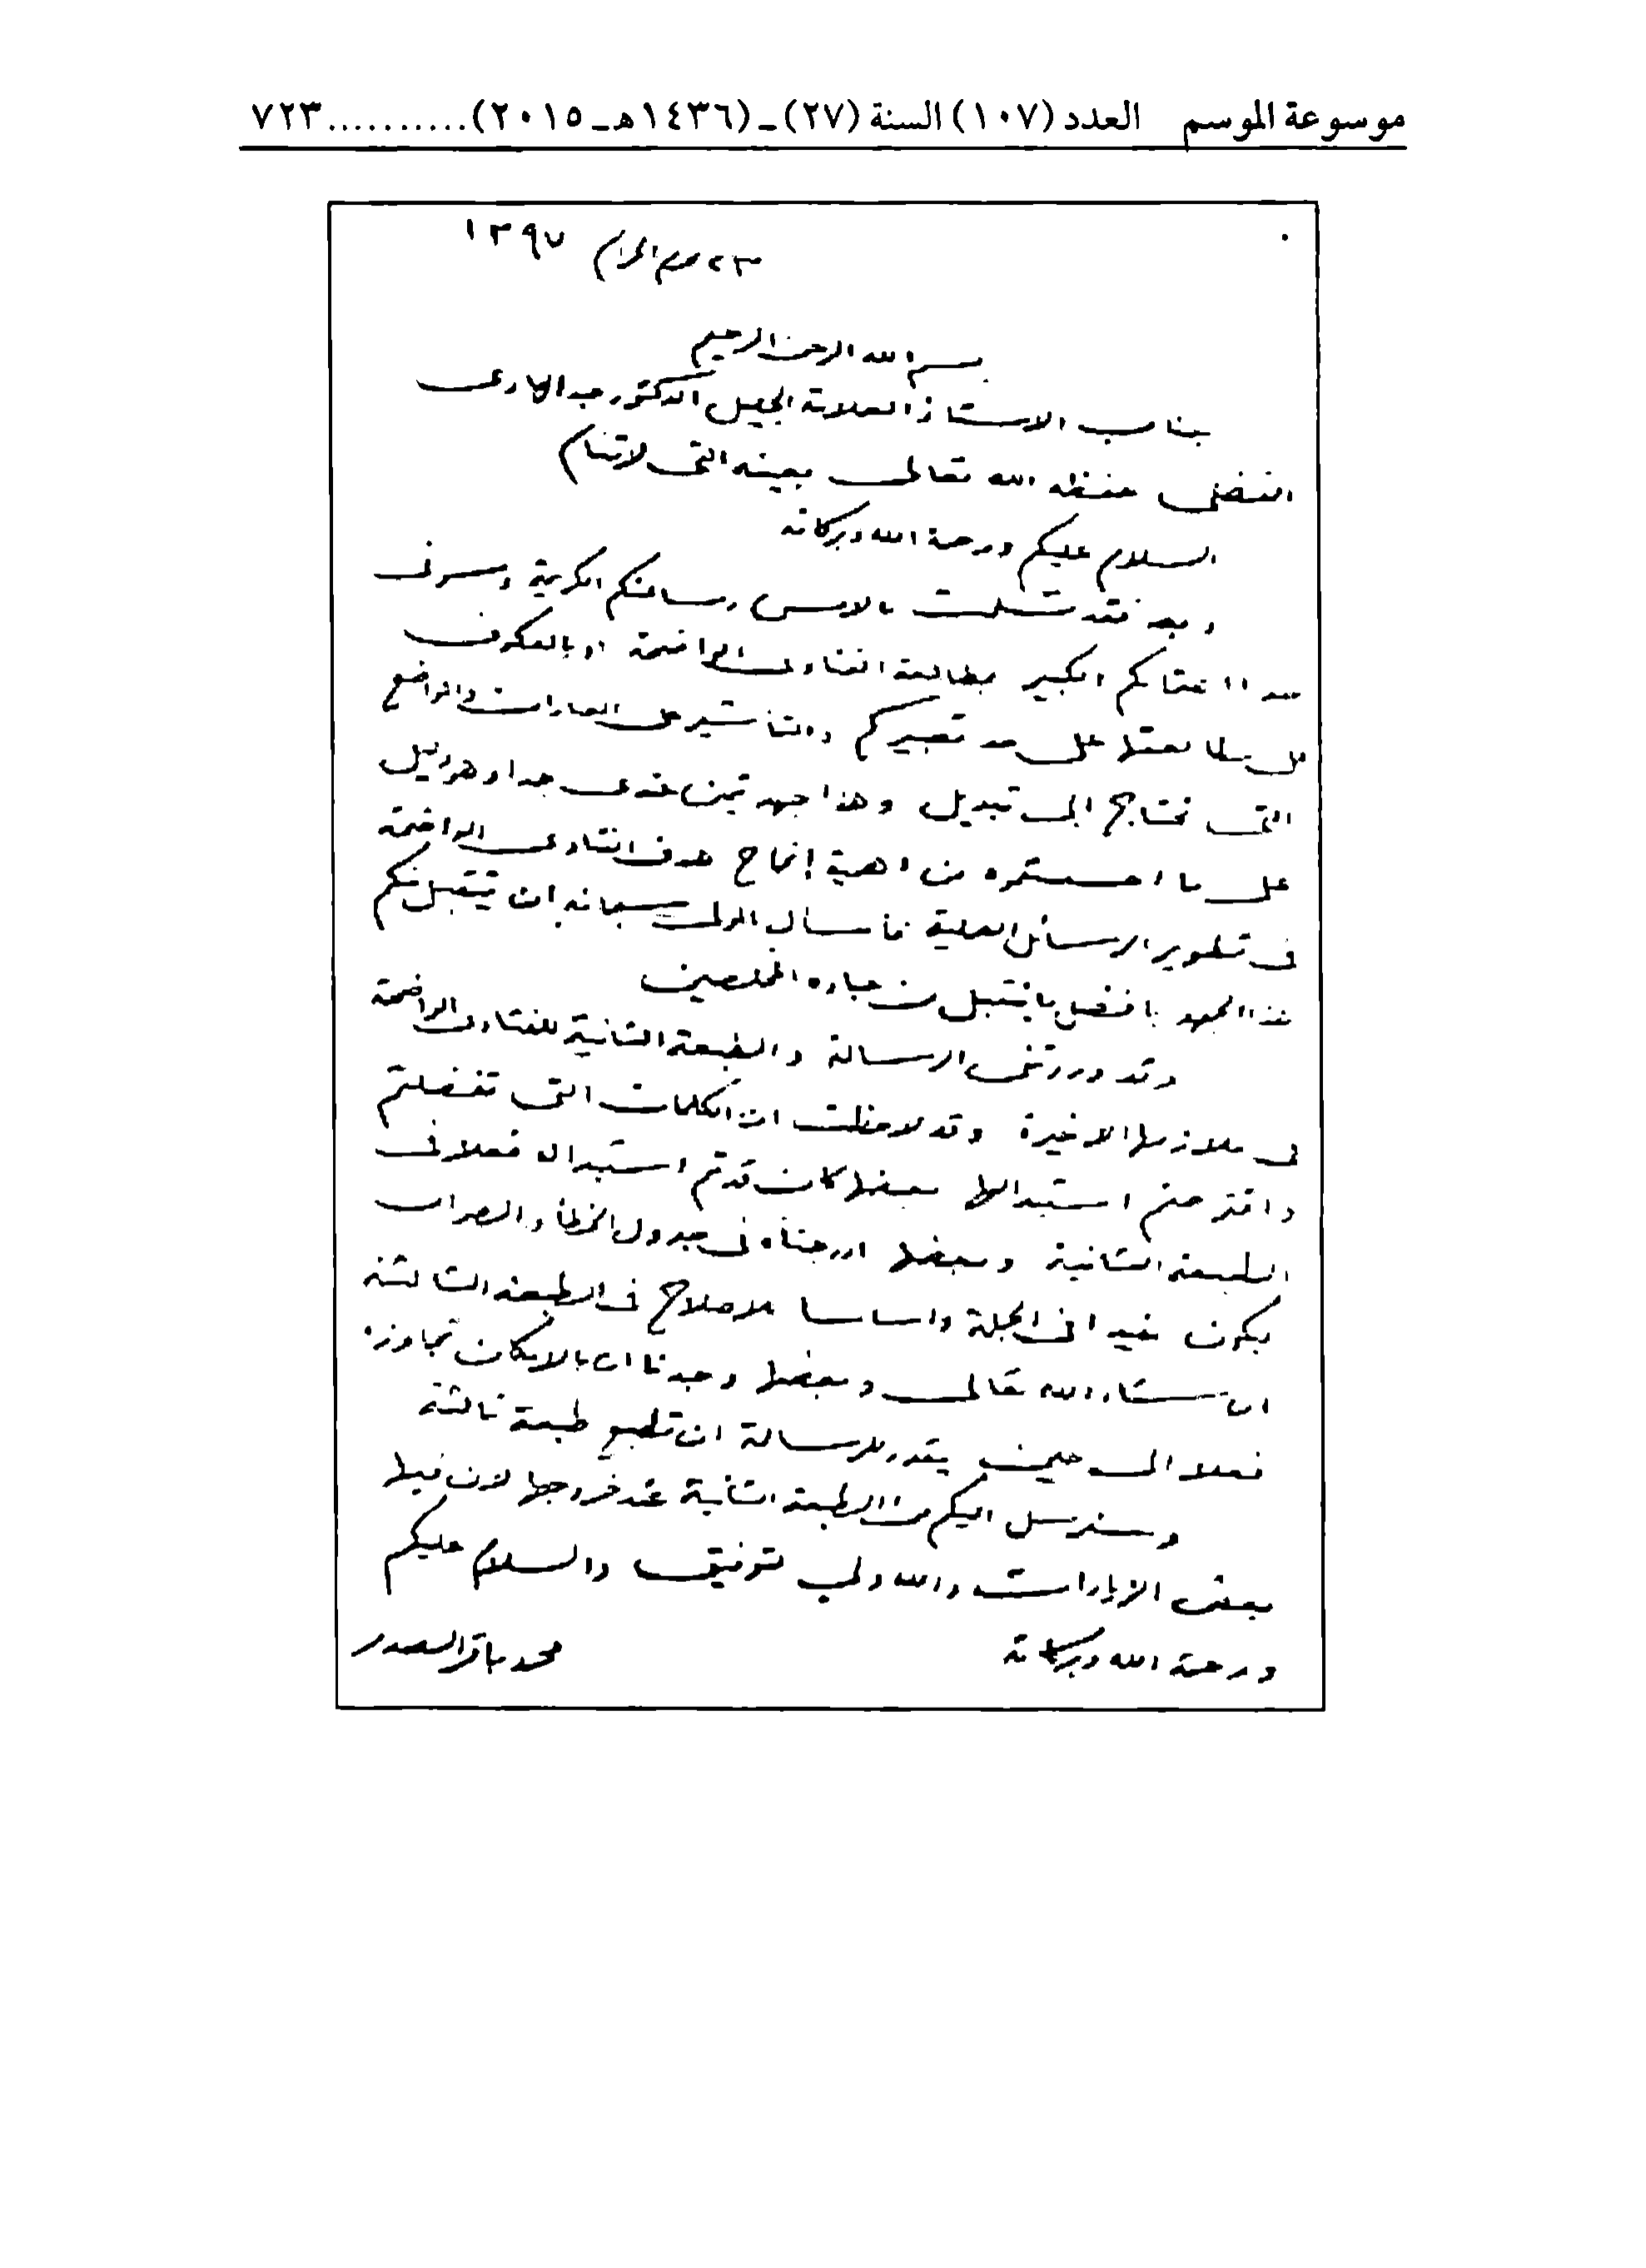 موسوعة الموسم العدد (١٠٧) السنة (٢٧) ـ (١٤٣٦هـ ـ ٢٠١٥) .......... ٧٢٣
٢٣ محرم الحرام ١٣٩٧
بسم الله الرحمن الرحيم
جناب الاستاذ العلامة الجليل الدكتور عبد الهادي
الفضلي حفظه الله تعالى بعينه التي لا تنام
السلام عليكم ورحمة الله وبركاته
وبعد فقد تسلمت بالامس رسالتكم الكريمة وسرني
اعتناءكم الكبير بمطالعة الفتاوى الواضحة او بالعكوف
على مطالعتها على حد تعبيركم والتأشير على العبارات والمواضع
التي تحتاج الى تبديل وهذا جهد ثمين عندي جدا وهو دليل
على ما من اهمية إنجاح هدف الفتاوى الواضحة
في تطوير الرسائل العملية فأسأل المولى سبحانه ان يتقبل منكم
هذا الجهد بافضل ما يتقبل من عباده المخلصين
وقد وردتني الرسالة والطبعة الثانية للفتاوى الواضحة
في ملازمها الاخيرة وقد لاحظت ان الكلمات التي تفضلتم
واقترحتم استبدالها بعضها كان قد تم استبداله فعلا في
الطبعة الثانية وبعضها ادرجناه في جدول الخطأ والصواب
يكون مفيدا في الجملة واساسا للاصلاح في الطبعة الثالثة
ان شاء الله تعالى وبعضها وجدنا ان بالامكان تجاوزه
فعلا الى حين يقدر للرسالة ان تطبع طبعة ثالثة
وسنرسل اليكم من الطبعة الثانية عند خروجها لان فيها
بعض الزيادات والله ولي التوفيق والسلام عليكم
ورحمة الله وبركاته محمد باقر الصدر